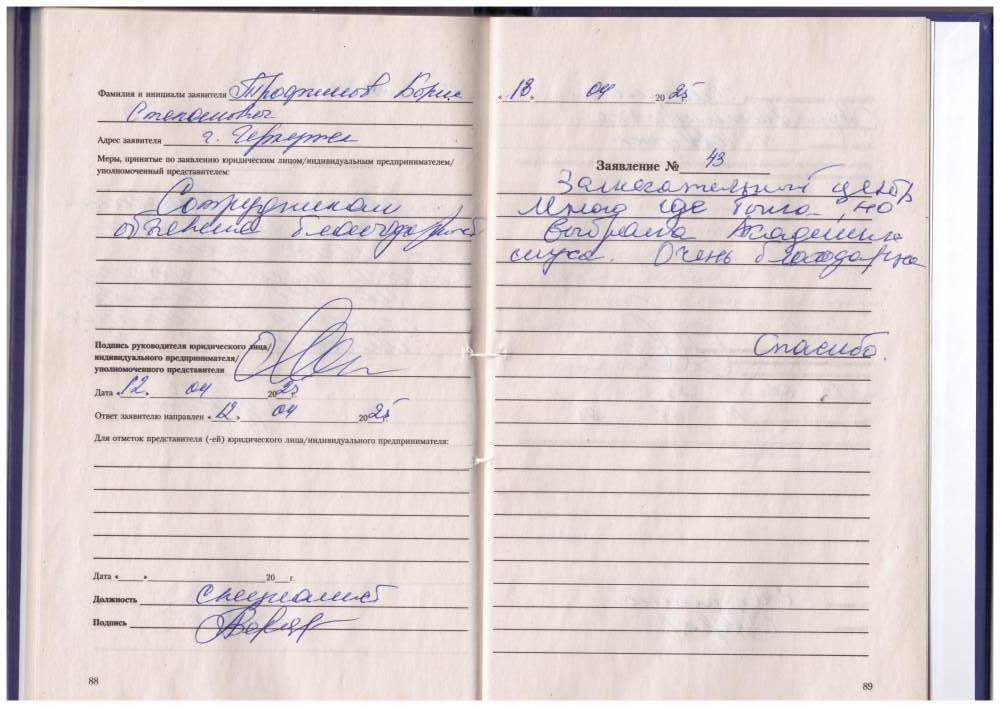 Фамилия и инициалы заявителя Трофимов Борис
Степанович
Адрес заявителя г.
Меры, принятые по заявлению юридическим лицом/индивидуальным предпринимателем/
уполномоченный представителем:
Сотрудникам
объявлена благодарность
Подпись руководителя юридического лица/
индивидуального предпринимателя/
уполномоченного представителя
Дата «12» 04 2025г.
Ответ заявителю направлен «12» 04 2025
Для отметок представителя (-ей) юридического лица/индивидуального предпринимателя:
Дата «____»____________20___г.
Должность специалист
Подпись
88
«13» 04 2025
Заявление № 43
Замечательный центр
Много где была, но
выбрала Академик
слуха. Очень благодарна
Спасибо.
89